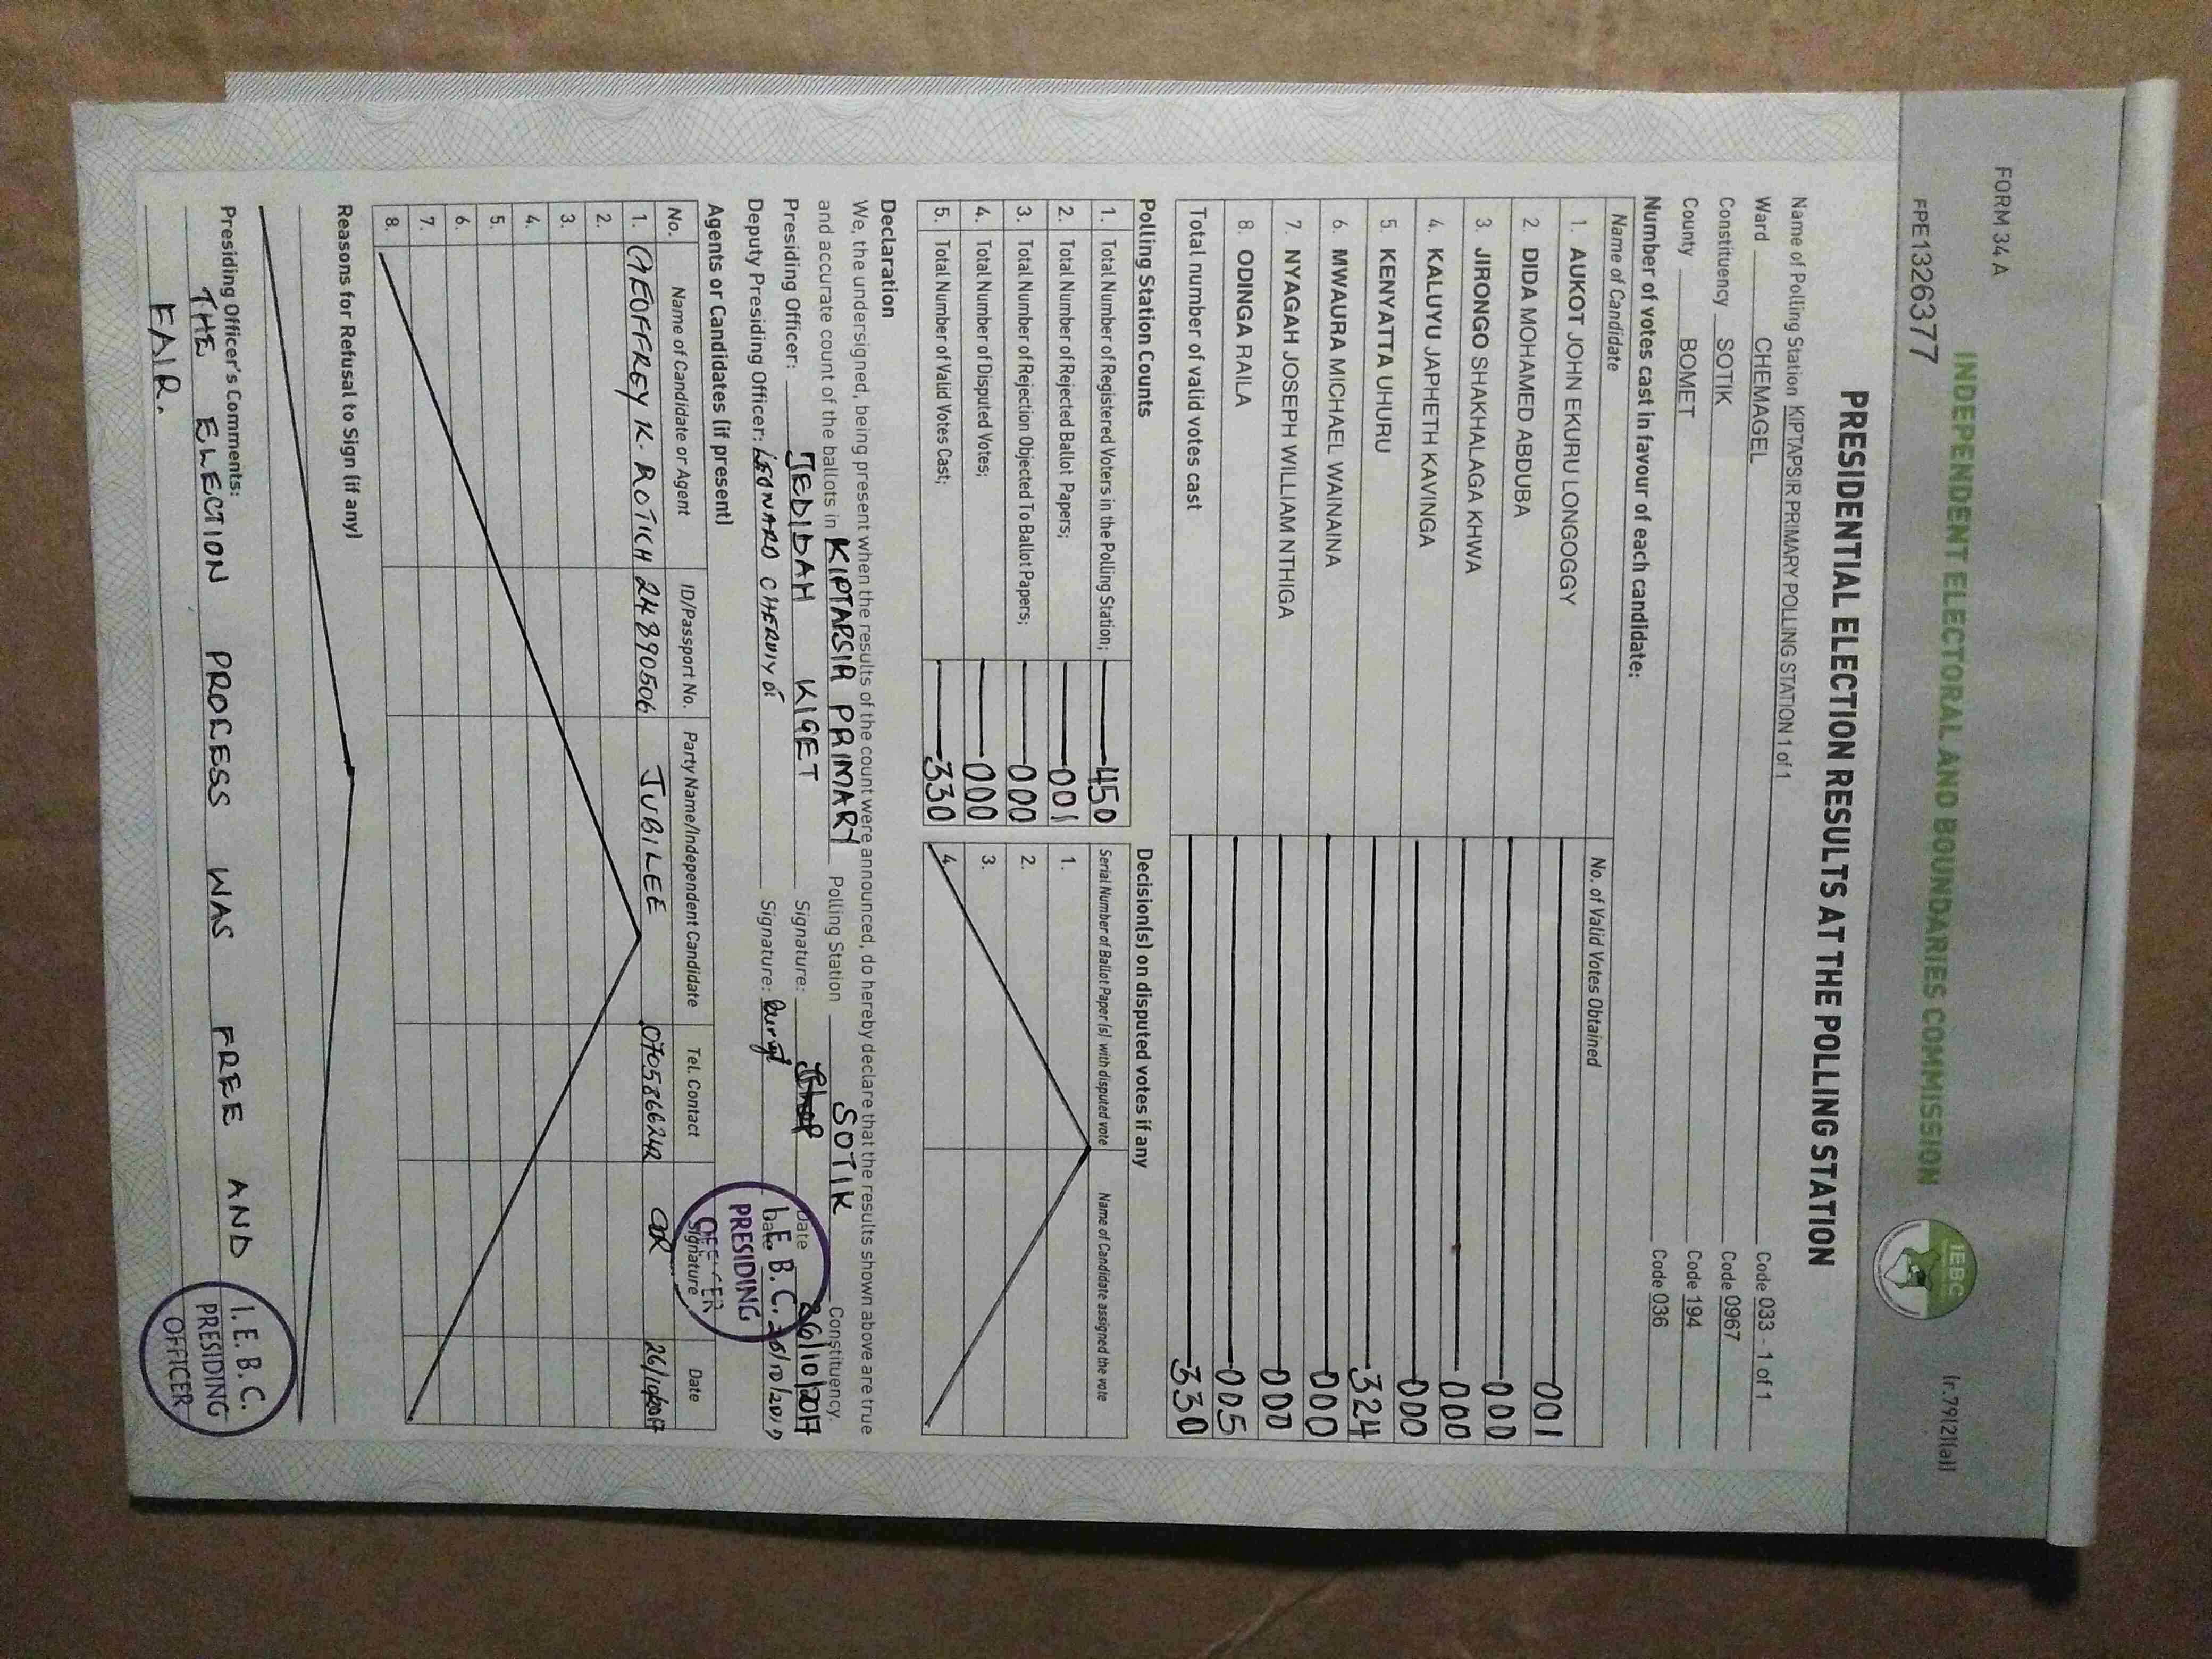 FORM 34 A
(r.79(2)(a))
INDEPENDENT ELECTORAL AND BOUNDARIES COMMISSION
IEBC
FPE1326377
PRESIDENTIAL ELECTION RESULTS AT THE POLLING STATION
Name of Polling Station KIPTAPSIR PRIMARY POLLING STATION 1 of 1
Ward CHEMAGEL Code 033 - 1 of 1
Constituency SOTIK Code 0967
County BOMET Code 194
Code 036
Number of votes cast in favour of each candidate:
Name of Candidate No. of Valid Votes Obtained
1. AUKOT JOHN EKURU LONGOGGY 001
2 DIDA MOHAMED ABDUBA 000
3. JIRONGO SHAKHALAGA KHWA 000
4. KALUYU JAPHETH KAVINGA 000
5 KENYATTA UHURU 324
6. MWAURA MICHAEL WAINAINA 000
7. NYAGAH JOSEPH WILLIAM NTHIGA 000
8. ODINGA RAILA 005
Total number of valid votes cast 330
Polling Station Counts
1. Total Number of Registered Voters in the Polling Station; 450
2. Total Number of Rejected Ballot Papers; 001
3. Total Number of Rejection Objected To Ballot Papers; 000
4. Total Number of Disputed Votes; 000
5. Total Number of Valid Votes Cast; 330
Decision(s) on disputed votes if any
Serial Number of Ballot Paper (s) with disputed vote Name of Candidate assigned the vote
1.
2.
3.
4.
Declaration
We, the undersigned, being present when the results of the count were announced, do hereby declare that the results shown above are true
and accurate count of the ballots in KIPTAPSIR PRIMARY Polling Station SOTIK Constituency.
Presiding Officer: JEDIDAH KIGET Signature: Date 26/10/2017
Deputy Presiding Officer: LEONARD CHERUIYOT Signature: Date 26/10/2017
I. E. B. C.
PRESIDING
OFFICER
Agents or Candidates (if present)
No. Name of Candidate or Agent ID/Passport No. Party Name/Independent Candidate Tel. Contact Signature Date
1. GEOFFREY K. ROTICH 24890506 JUBILEE 0705866242 26/10/2017
2.
3.
4.
5.
6.
7.
8.
Reasons for Refusal to Sign (if any)
Presiding Officer's Comments:
THE ELECTION PROCESS WAS FREE AND
FAIR.
I. E. B. C.
PRESIDING
OFFICER